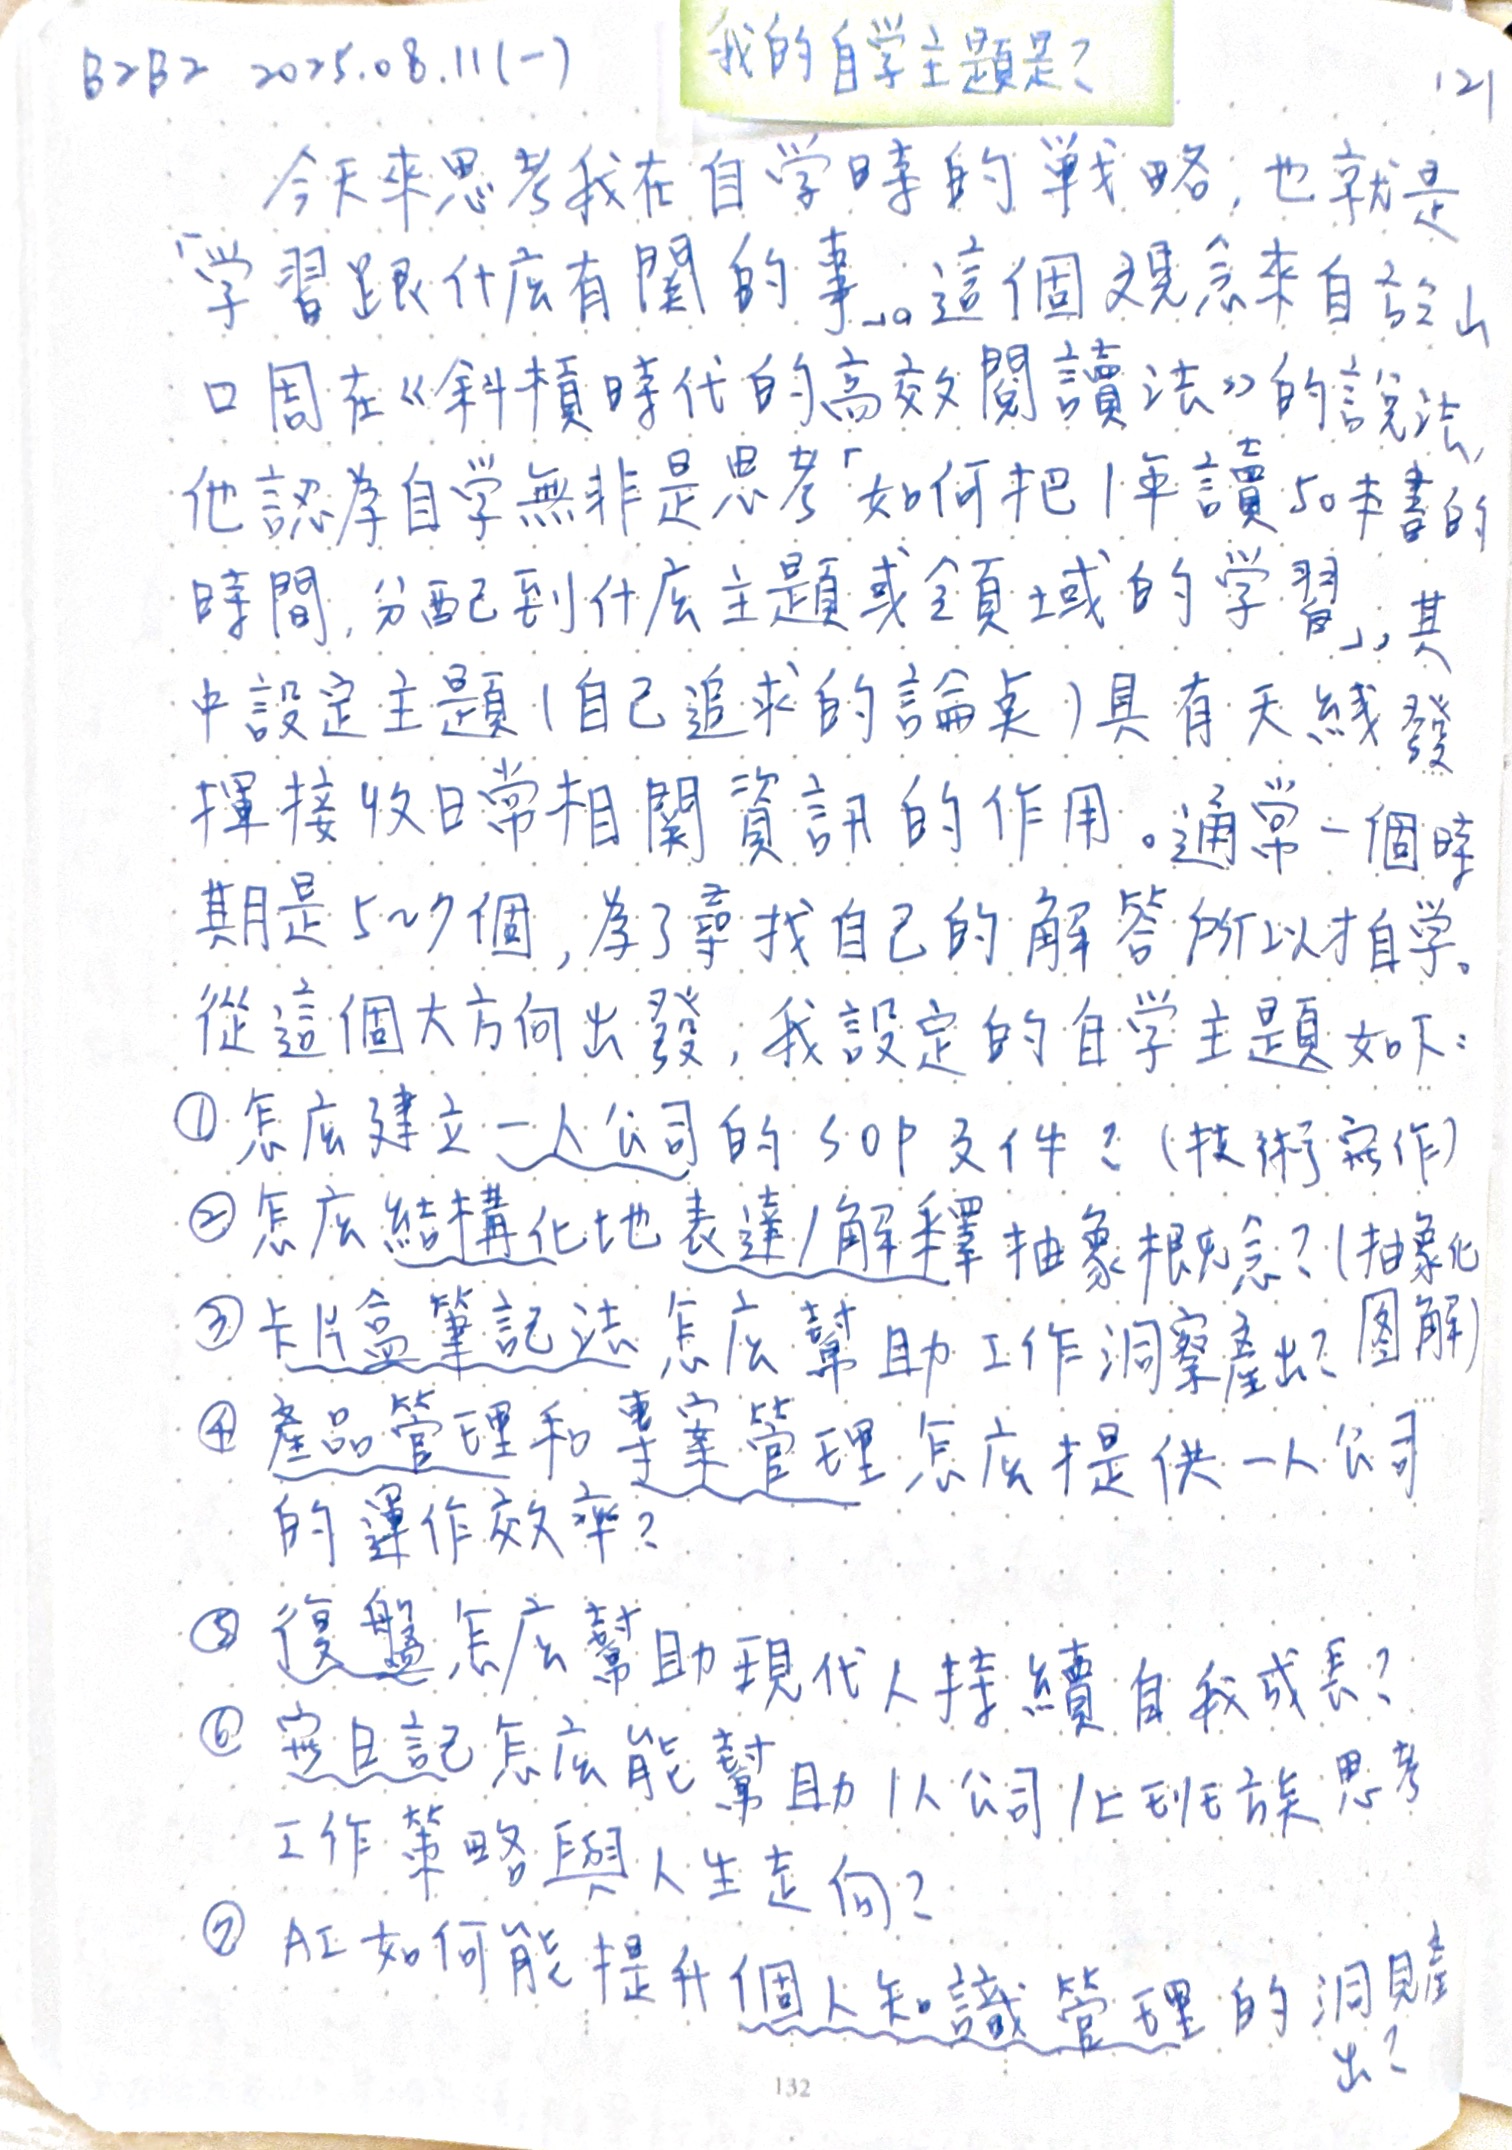 B2B2 2025.08.11(一)
我的自学主題是?
121
今天來思考我在自学時的戦略,也就是
「学習跟什広有関的事」。這個观念來自於山
口周在《斜槓時代的高效閱讀法》的說法,
他認為自学無非是思考「如何把1年讀50本書的
時間,分配到什広主題或領域的学習」,其
中設定主題(自己追求的論点)具有天線發
揮接收日常相関資訊的作用。通常一個時
期是5~7個,為了尋找自己的解答所以才自学。
從這個大方向出發,我設定的自学主題如下:
①怎広建立一人公司的SOP文件?(技術寫作)
②怎広結構化地表達/解釋抽象概念?(抽象化
図解)
③卡片盒筆記法怎広幫助工作洞察產出?
④產品管理和專案管理怎広提供一人公司
的運作效率?
⑤復盤怎広幫助現代人持續自我成長?
⑥寫日記怎広能幫助1人公司/上班族思考
工作策略與人生走向?
⑦AI如何能提升個人知識管理的洞見產
出?
132